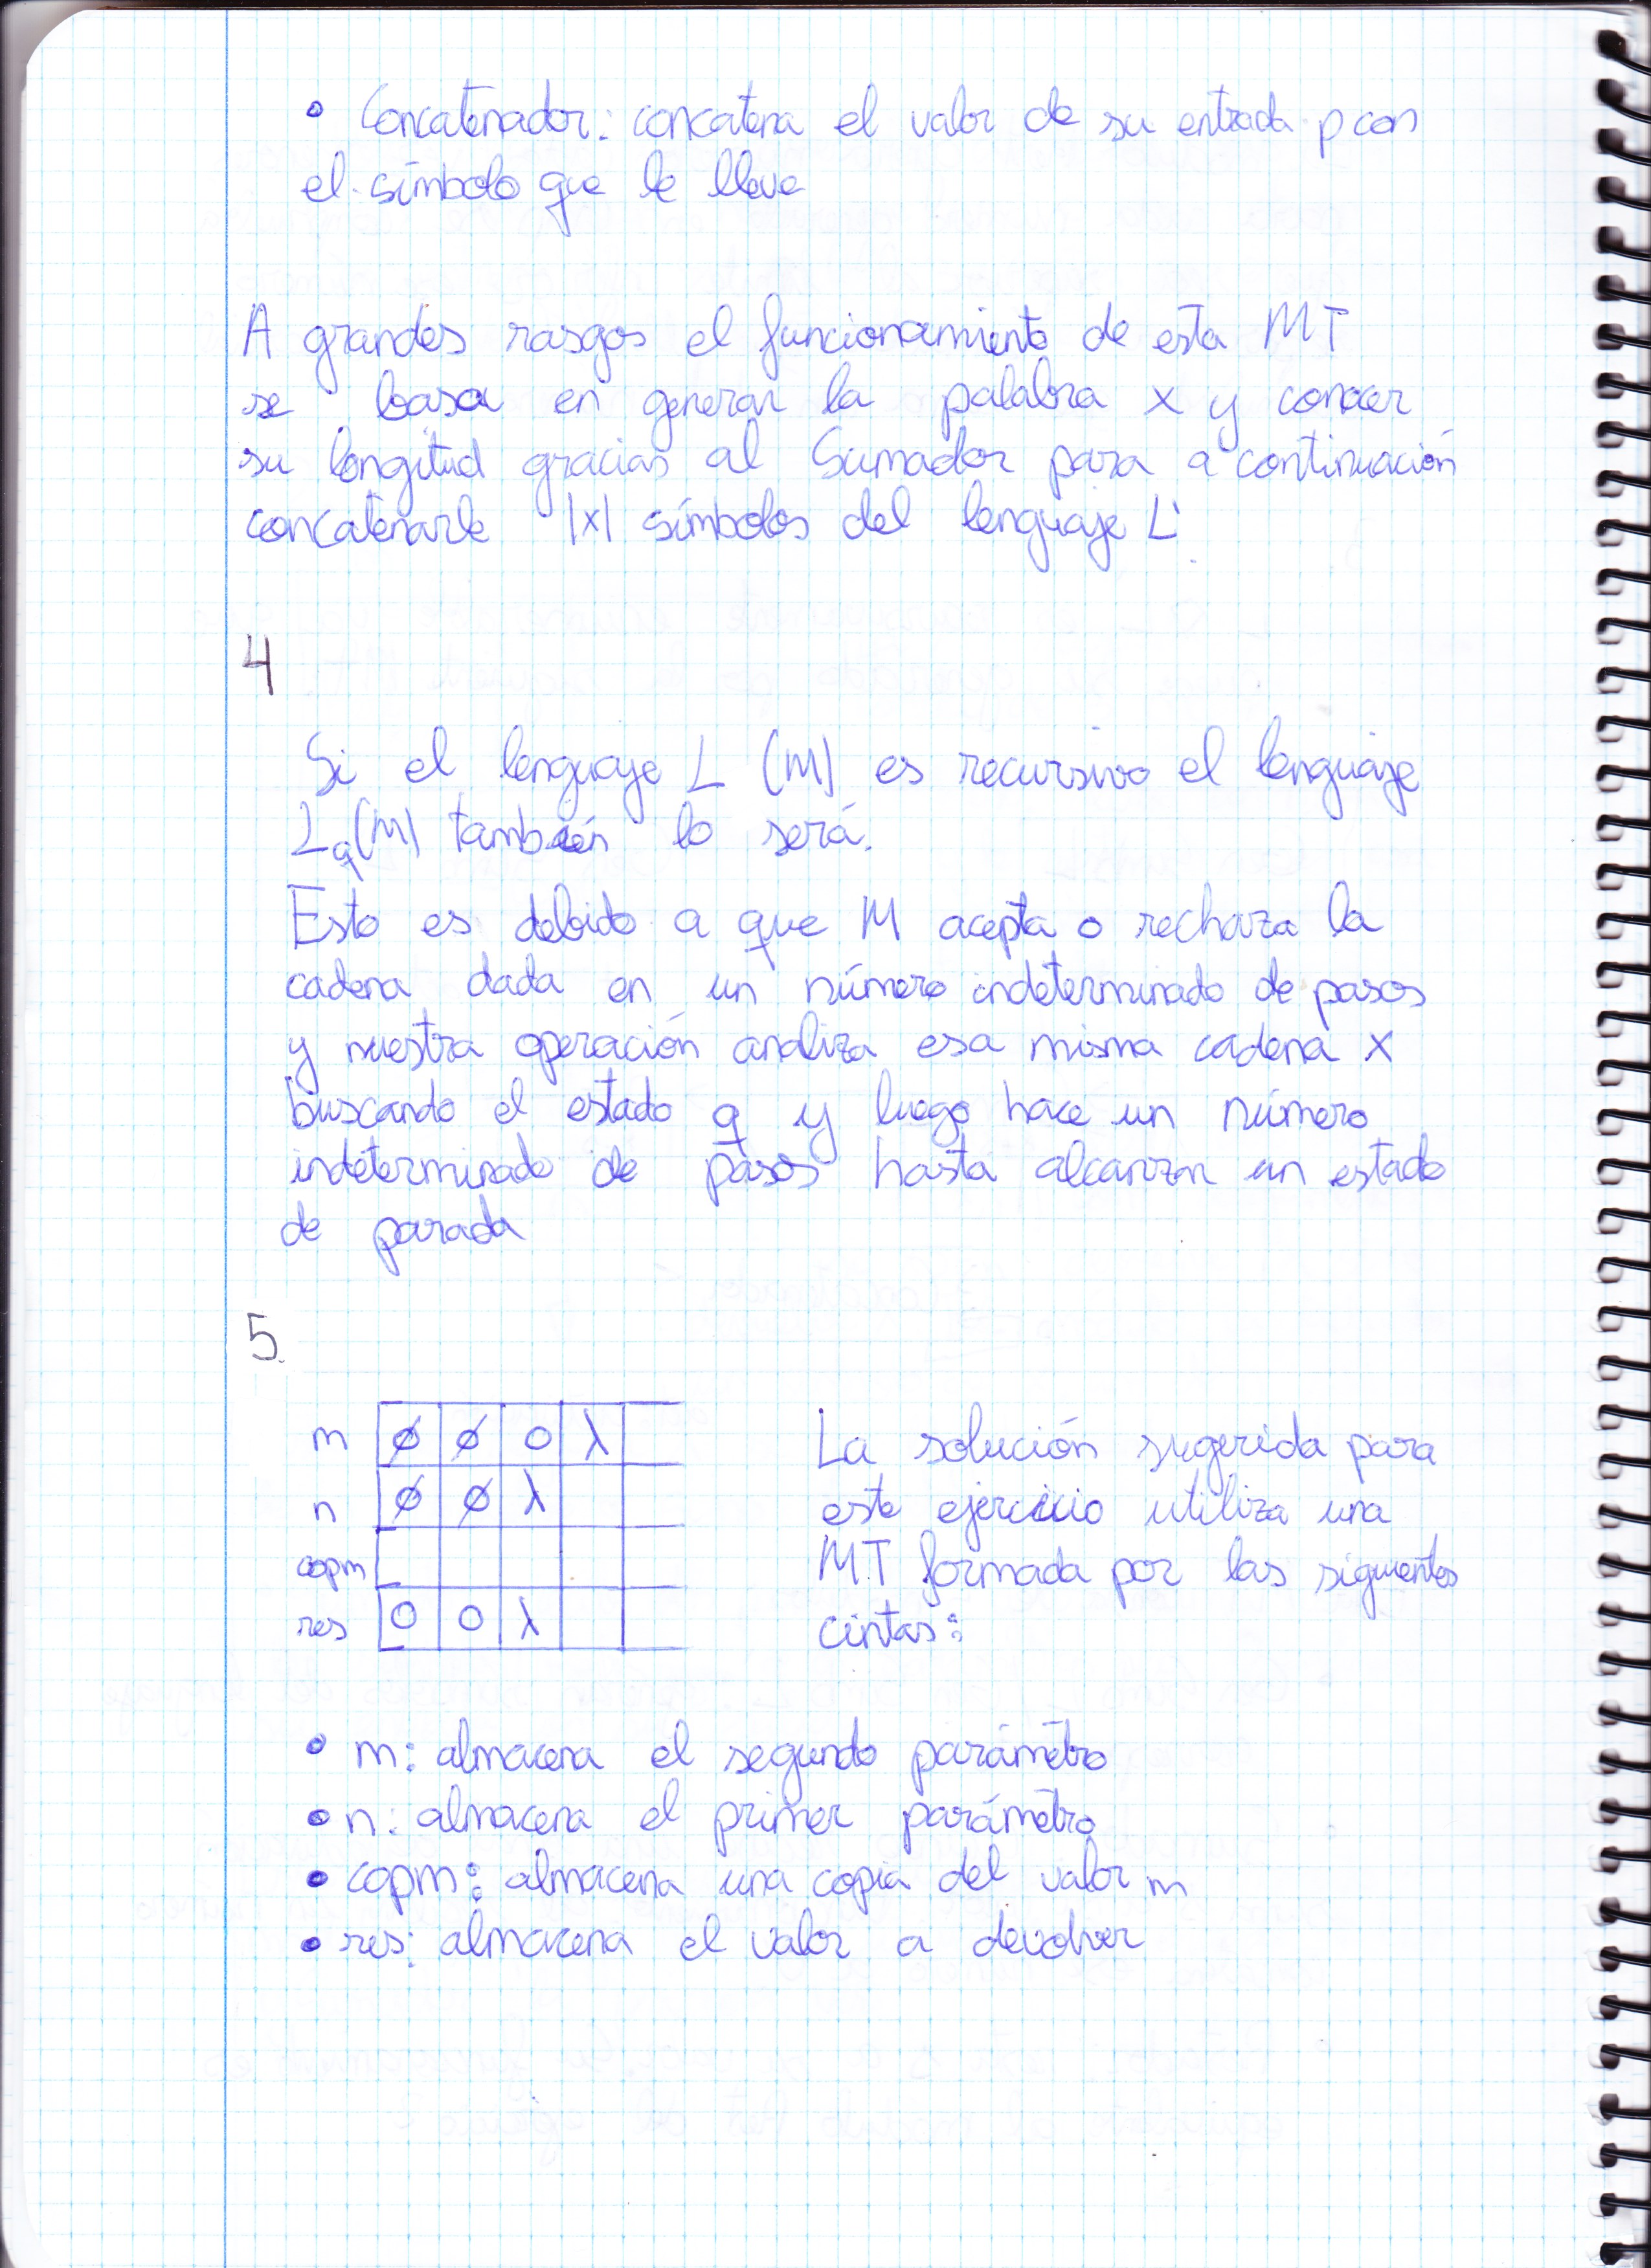 • Concatenador: concatena el valor de su entrada p con
el símbolo que le lleve
A grandes rasgos el funcionamiento de esta MT
se basa en generar la palabra x y conocer
su longitud gracias al Sumador para a continuación
concatenarle |x| símbolos del lenguaje L'
4
Si el lenguaje L (M) es recursivo el lenguaje
Lq(M) también lo será.
Esto es debido a que M acepta o rechaza la
cadena dada en un número indeterminado de pasos
y nuestra operación analiza esa misma cadena x
buscando el estado q y luego hace un número
indeterminado de pasos hasta alcanzar un estado
de parada
5.
m ∅ ∅ 0 λ
n ∅ ∅ λ
copm
res 0 0 λ
La solución sugerida para
este ejercicio utiliza una
MT formada por las siguientes
cintas:
• m: almacena el segundo parámetro
• n: almacena el primer parámetro
• copm: almacena una copia del valor m
• res: almacena el valor a devolver